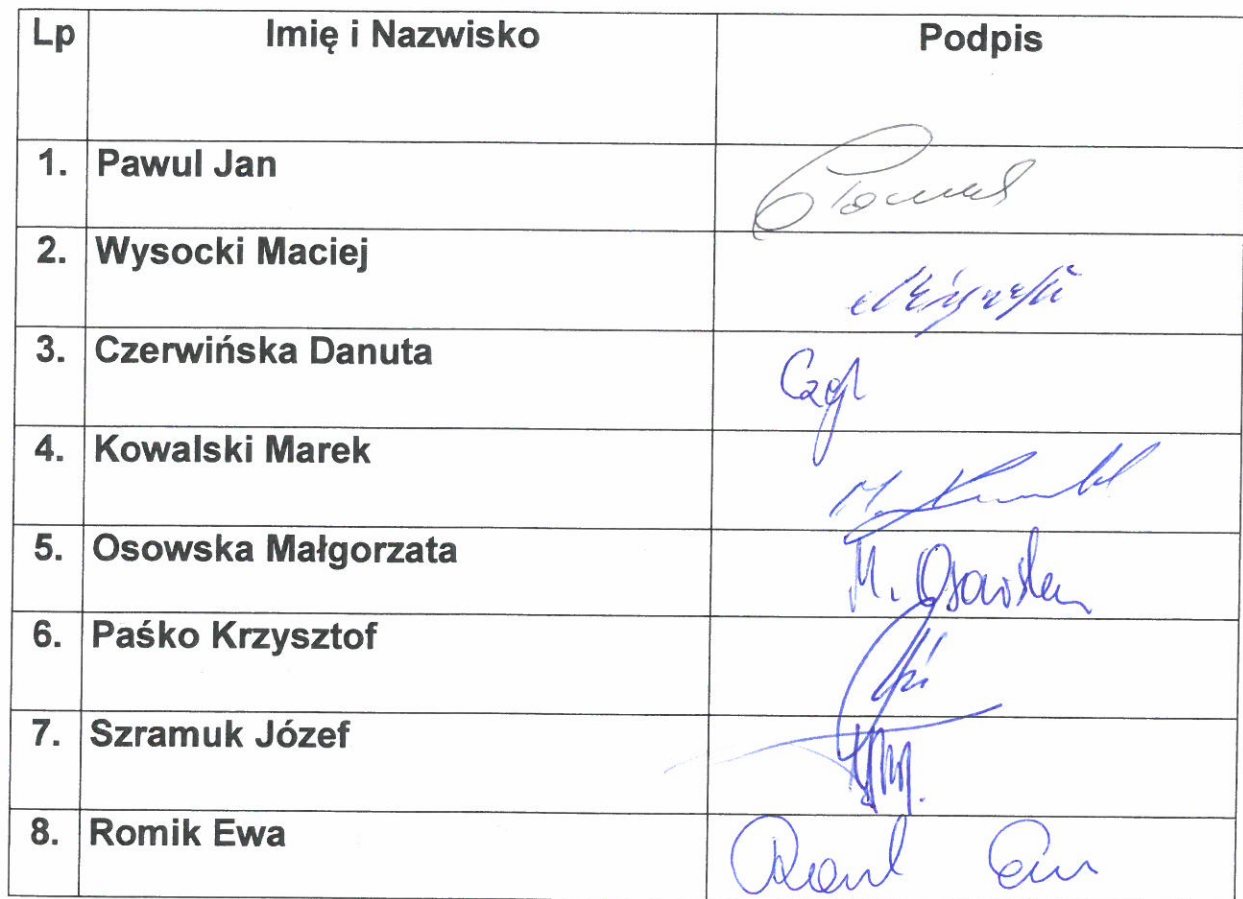 Lp Imię i Nazwisko Podpis
1. Pawul Jan
2. Wysocki Maciej
3. Czerwińska Danuta
4. Kowalski Marek
5. Osowska Małgorzata M. Osowska
6. Paśko Krzysztof
7. Szramuk Józef
8. Romik Ewa